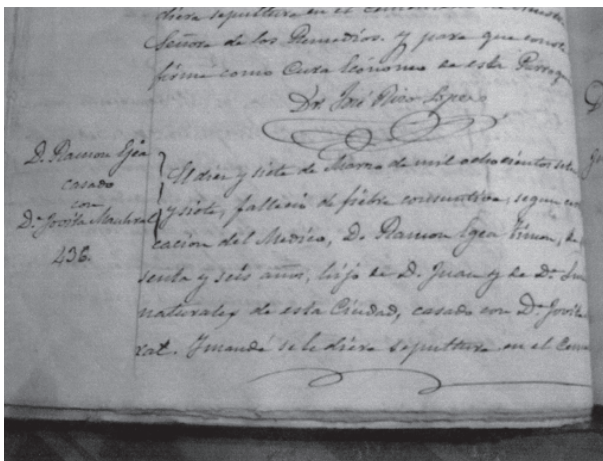 diera sepultura en el
Señora de los Remedios. y para que conste
firmo como Cura Ecónomo de esta Parroq
Dr. José Rico Lopez
D. Ramon Ejea
casado
con
Dª Jovita
436.
El diez y siete de Marzo de mil ochocientos seten
y siete, falleció de fiebre consuntiva, segun
cacion del Medico, D. Ramon Egea de
senta y seis años, hijo de D. Juan y de Dª
naturales de esta Ciudad, casado con Dª Jovita
rat. Ymandé se le diera sepultura en el Cemen